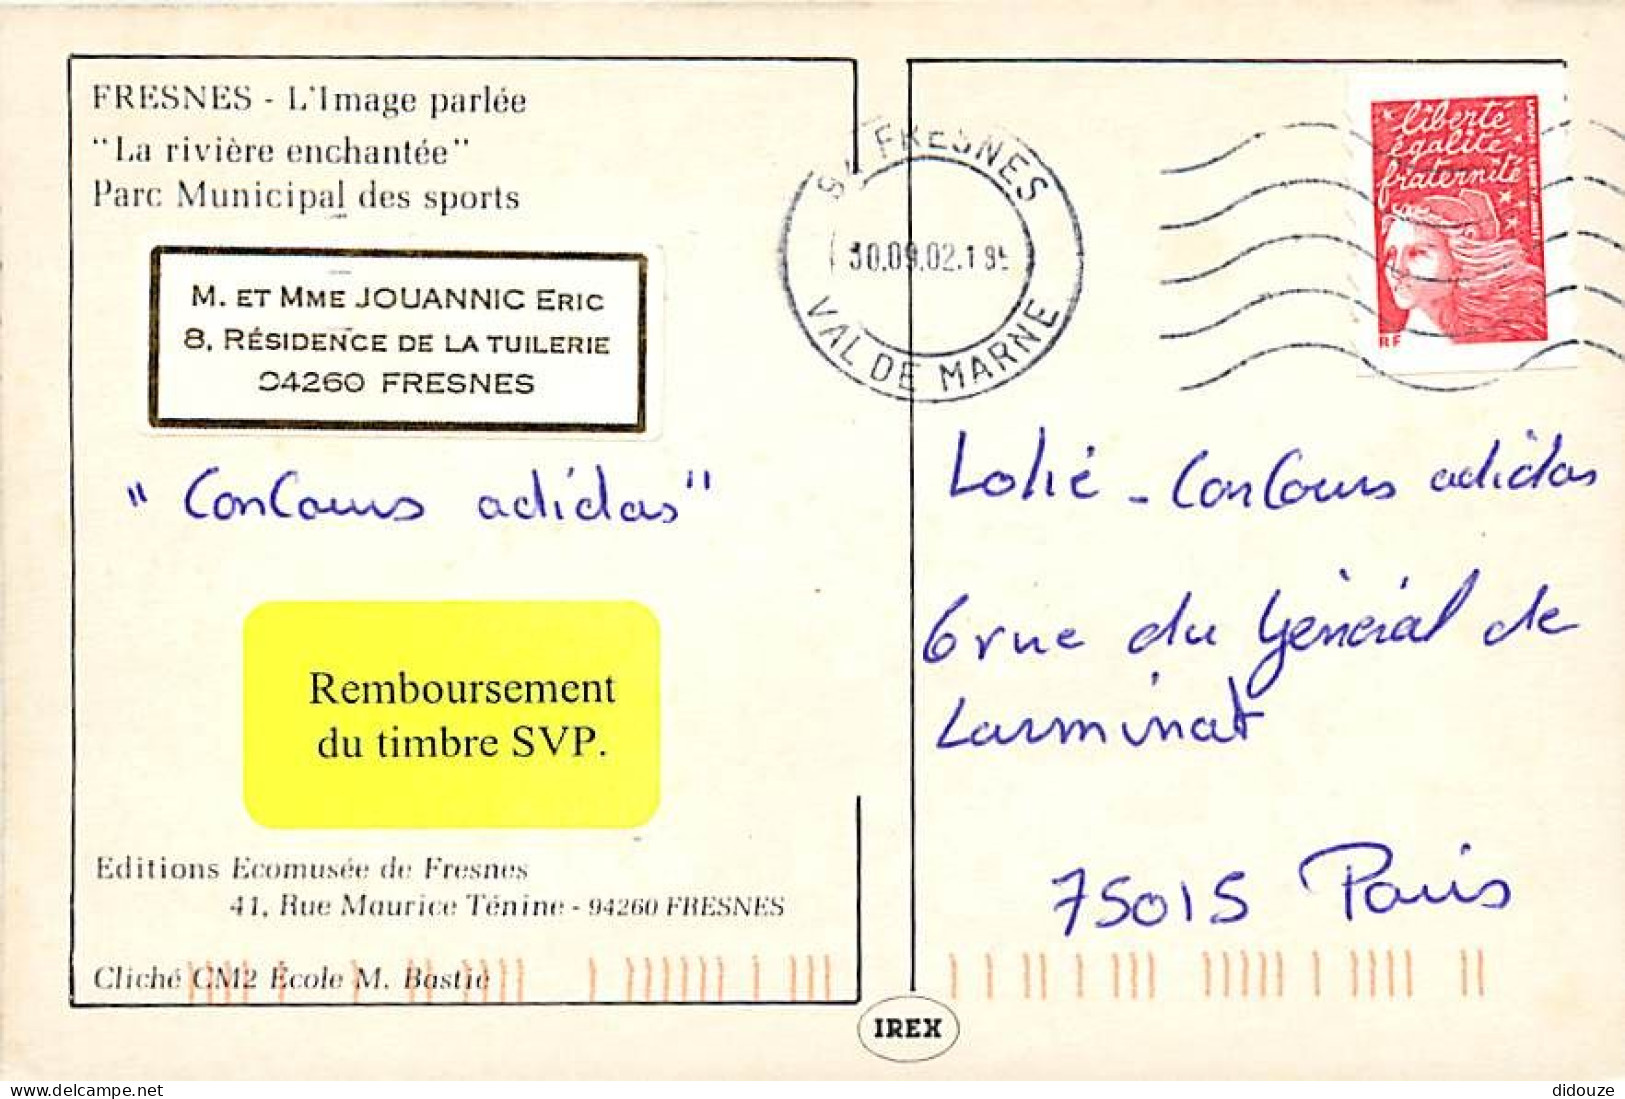 FRESNES - L'Image parlée
"La rivière enchantée"
Parc Municipal des sports
M. ET MME JOUANNIC ERIC
8, RÉSIDENCE DE LA TUILERIE
94260 FRESNES
" Concours adidas "
Remboursement
du timbre SVP.
Editions Ecomusée de Fresnes
41, Rue Maurice Ténine - 94260 FRESNES
Cliché CM2 Ecole M. Bastié
IREX
94 FRESNES
30.09.02
VAL DE MARNE
liberté
égalité
fraternité
RF
Lolié - Concours adidas
6 rue du Général de
Larminat
75015 Paris
didouze